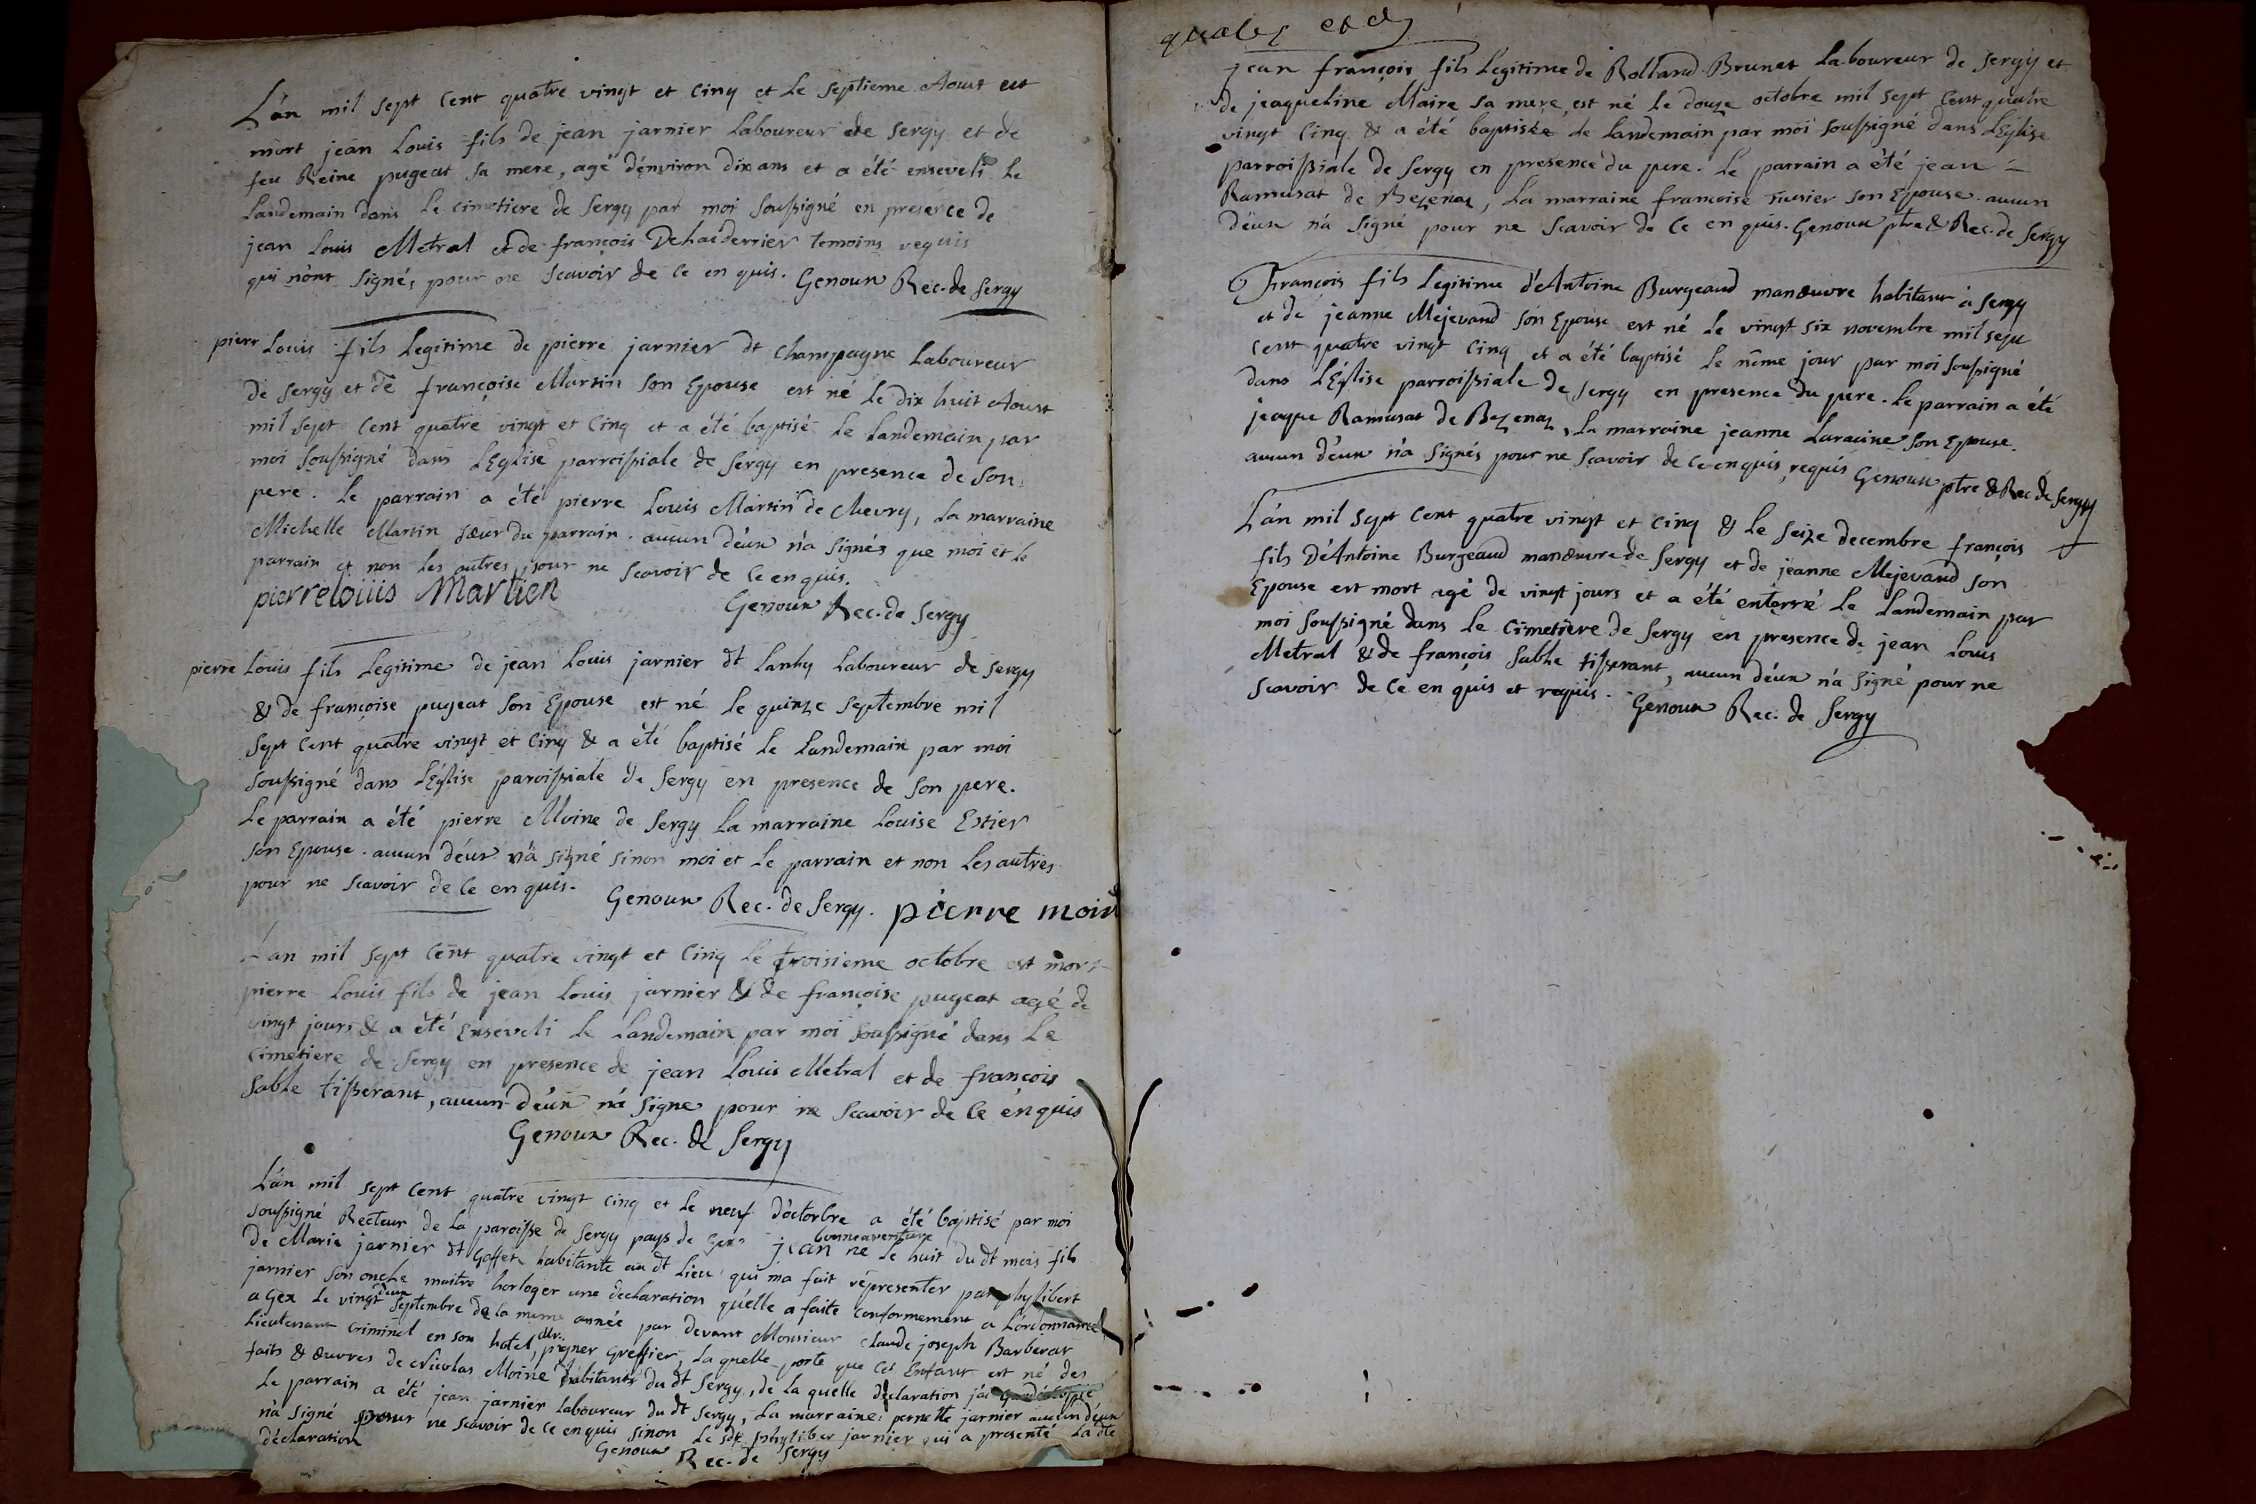 L'án mil sept Cent quatre vingt et Cinq et le septieme Aoust est
mort jean Louis fils de jean jarnier Laboureur de Sergy et de
feu Reine pugeat sa mere, agé d'énviron dix ans et a été enseveli le
Landemain dans le cimetiere de Sergy par moi Soussigné en presence de
jean Louis Metral et de françois temoins requis
qui n'ont signés pour ne scavoir de ce en quis. Genoux Rec. de Sergy
pierr Louis fils Legitime de pierre jarnier dt Champagne Laboureur
de Sergy et de françoise Martin son Epouse est né le dix huit Aoust
mil sept Cent quatre vingt et Cinq et a été baptisé le Landemain par
moi Soussigné dans L'Eglise parroissiale de Sergy en presence de son
pere. le parrain a été pierre Louis Martin de Chevry, la marraine
Michelle Martin sœur du parrain. aucun d'eux n'a signés que moi et le
parrain et non les autres pour ne scavoir de ce enquis.
pierre loüis Martien
Genoux Rec. de Sergy
pierre Louis fils Legitime de jean Louis jarnier dt Lanhy Laboureur de Sergy
& de françoise pugeat son Epouse est né le quinze septembre mil
sept Cent quatre vingt et Cinq & a été baptisé le Landemain par moi
Soussigné dans L'Eglise paroissiale de Sergy en presence de son pere.
le parrain a été pierre Moine de Sergy la marraine Louise Estier
son Epouse. aucun d'eux n'a signé sinon moi et le parrain et non les autres
pour ne scavoir de ce en quis. Genoux Rec. de Sergy. pierre moin
L'an mil sept cent quatre vingt et Cinq le troisieme octobre est mort
pierre Louis fils de jean Louis jarnier & de françoise pugeat agé de
vingt jours & a été Enseveli le Landemain par moi soussigné dans le
Cimetiere de Sergy en presence de jean Louis Metral et de françois
Sable tisserant, aucun d'eux n'a signe pour ne scavoir de ce énquis
Genoux Rec. de Sergy
L'án mil sept Cent quatre vingt Cinq et le neuf d'octorbre a été baptisé par moi
soussigné Recteur de la paroisse de Sergy pays de Gex jean bonneaventure né le huit du dt mois fils
de Marie jarnier dt Goffet habitante au dt Lieu qui ma fait répresenter par phylibert
jarnier son oncle maitre horloger une declaration qu'elle a faite Conformement a L'ordonnance
a Gex le vingt deux septembre de la meme année par devant Monsieur Claude joseph Barberat
Lieutenant Criminel en son hotel, greffier, la quelle porte que cet Enfant est né des
faits & œuvres de Nicolas Moine habitant du dt Sergy, de la quelle déclaration j'ai
le parrain a été jean jarnier Laboureur du dt Sergy, la marraine pernette jarnier aucun d'eux
n'a signé pour ne scavoir de ce enquis sinon le sdt phyliber jarnier qui a presenté la dte
déclaration
Genoux Rec. de Sergy
jean françois fils Legitime de Rolland Brunet La boureur de Sergy et
de jeaqueline Maire sa mere est né le douze octobre mil sept Cent quatre
vingt Cinq & a été baptisée le landemain par moi soussigné dans L'Eglise
parroissiale de Sergy en presence du pere. le parrain a été jean
Ramusat de Bezenaz, la marraine francoise son Epouse. aucun
d'eux n'a signé pour ne scavoir de ce en quis. Genoux ptre & Rec. de Sergy
François fils Legitime d'Antoine Burgeaud manœuvre habitant à Sergy
et de jeanne Mejevand son Epouse est né le vingt six novembre mil sept
cent quatre vingt Cinq et a été baptisé le même jour par moi soussigné
dans L'Eglise parroissiale de Sergy en presence du pere. le parrain a été
jeaque Ramusat de Bezenaz, la marraine jeanne Laracine son Epouse.
aucun d'eux n'a signés pour ne scavoir de ce enquis, requis Genoux ptre & Rec. de Sergy
L'án mil sept Cent quatre vingt et Cinq & le seize decembre françois
fils D'Antoine Burgeaud manœuvre de Sergy et de jeanne Mejevand son
Epouse est mort agé de vingt jours et a été enterré le landemain par
moi soussigné dans le Cimetiere de Sergy en presence de jean Louis
Metral & de françois Sable tisserant, aucun d'eux n'a signé pour ne
scavoir de ce en quis et requis. Genoux Rec. de Sergy